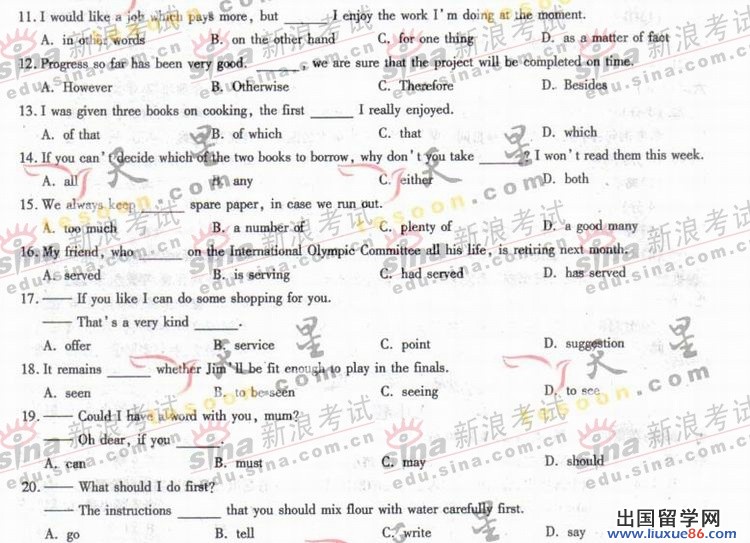 11. I would like a job which pays more, but ______ I enjoy the work I'm doing at the moment.
A. in other words B. on the other hand C. for one thing D. as a matter of fact
12. Progress so far has been very good. ______, we are sure that the project will be completed on time.
A. However B. Otherwise C. Therefore D. Besides
13. I was given three books on cooking, the first ______ I really enjoyed.
A. of that B. of which C. that D. which
14. If you can't decide which of the two books to borrow, why don't you take ______? I won't read them this week.
A. all B. any C. either D. both
15. We always keep ______ spare paper, in case we run out.
A. too much B. a number of C. plenty of D. a good many
16. My friend, who ______ on the International Olympic Committee all his life, is retiring next month.
A. served B. is serving C. had served D. has served
17. —— If you like I can do some shopping for you.
—— That's a very kind ______.
A. offer B. service C. point D. suggestion
18. It remains ______ whether Jim'll be fit enough to play in the finals.
A. seen B. to be seen C. seeing D. to see
19. —— Could I have a word with you, mum?
—— Oh dear, if you ______.
A. can B. must C. may D. should
20. —— What should I do first?
—— The instructions ______ that you should mix flour with water carefully first.
A. go B. tell C. write D. say
sina 新浪考试
edu.sina.com.cn
天星
tesoon.com
出国留学网
www.liuxue86.com